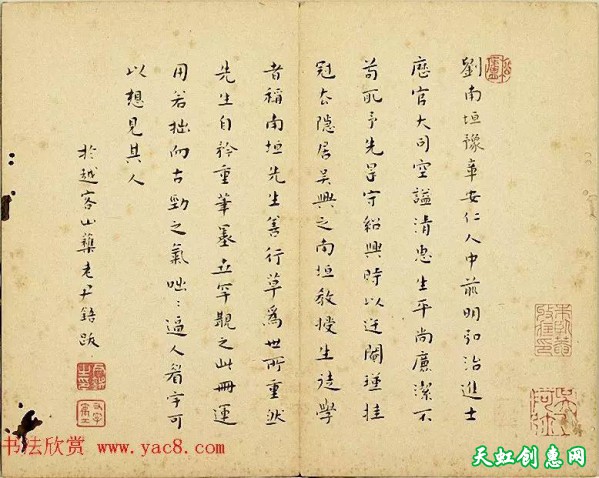 劉南垣豫華安仁人中前明弘治進士
歷官大司空謚清惠生平尚廉潔不
苟取予先是守紹興時以逆閹瑾挂
冠去隱居吳興之南垣教授生徒學
者稱南垣先生善行草爲世所重然
先生自矜重筆墨罕覩之此冊運
用若拙而古勁之氣咄〻逼人看字可
以想見其人
於越客山藥老尹鍔跋
书法欣赏 www.yac8.com
天虹创惠网